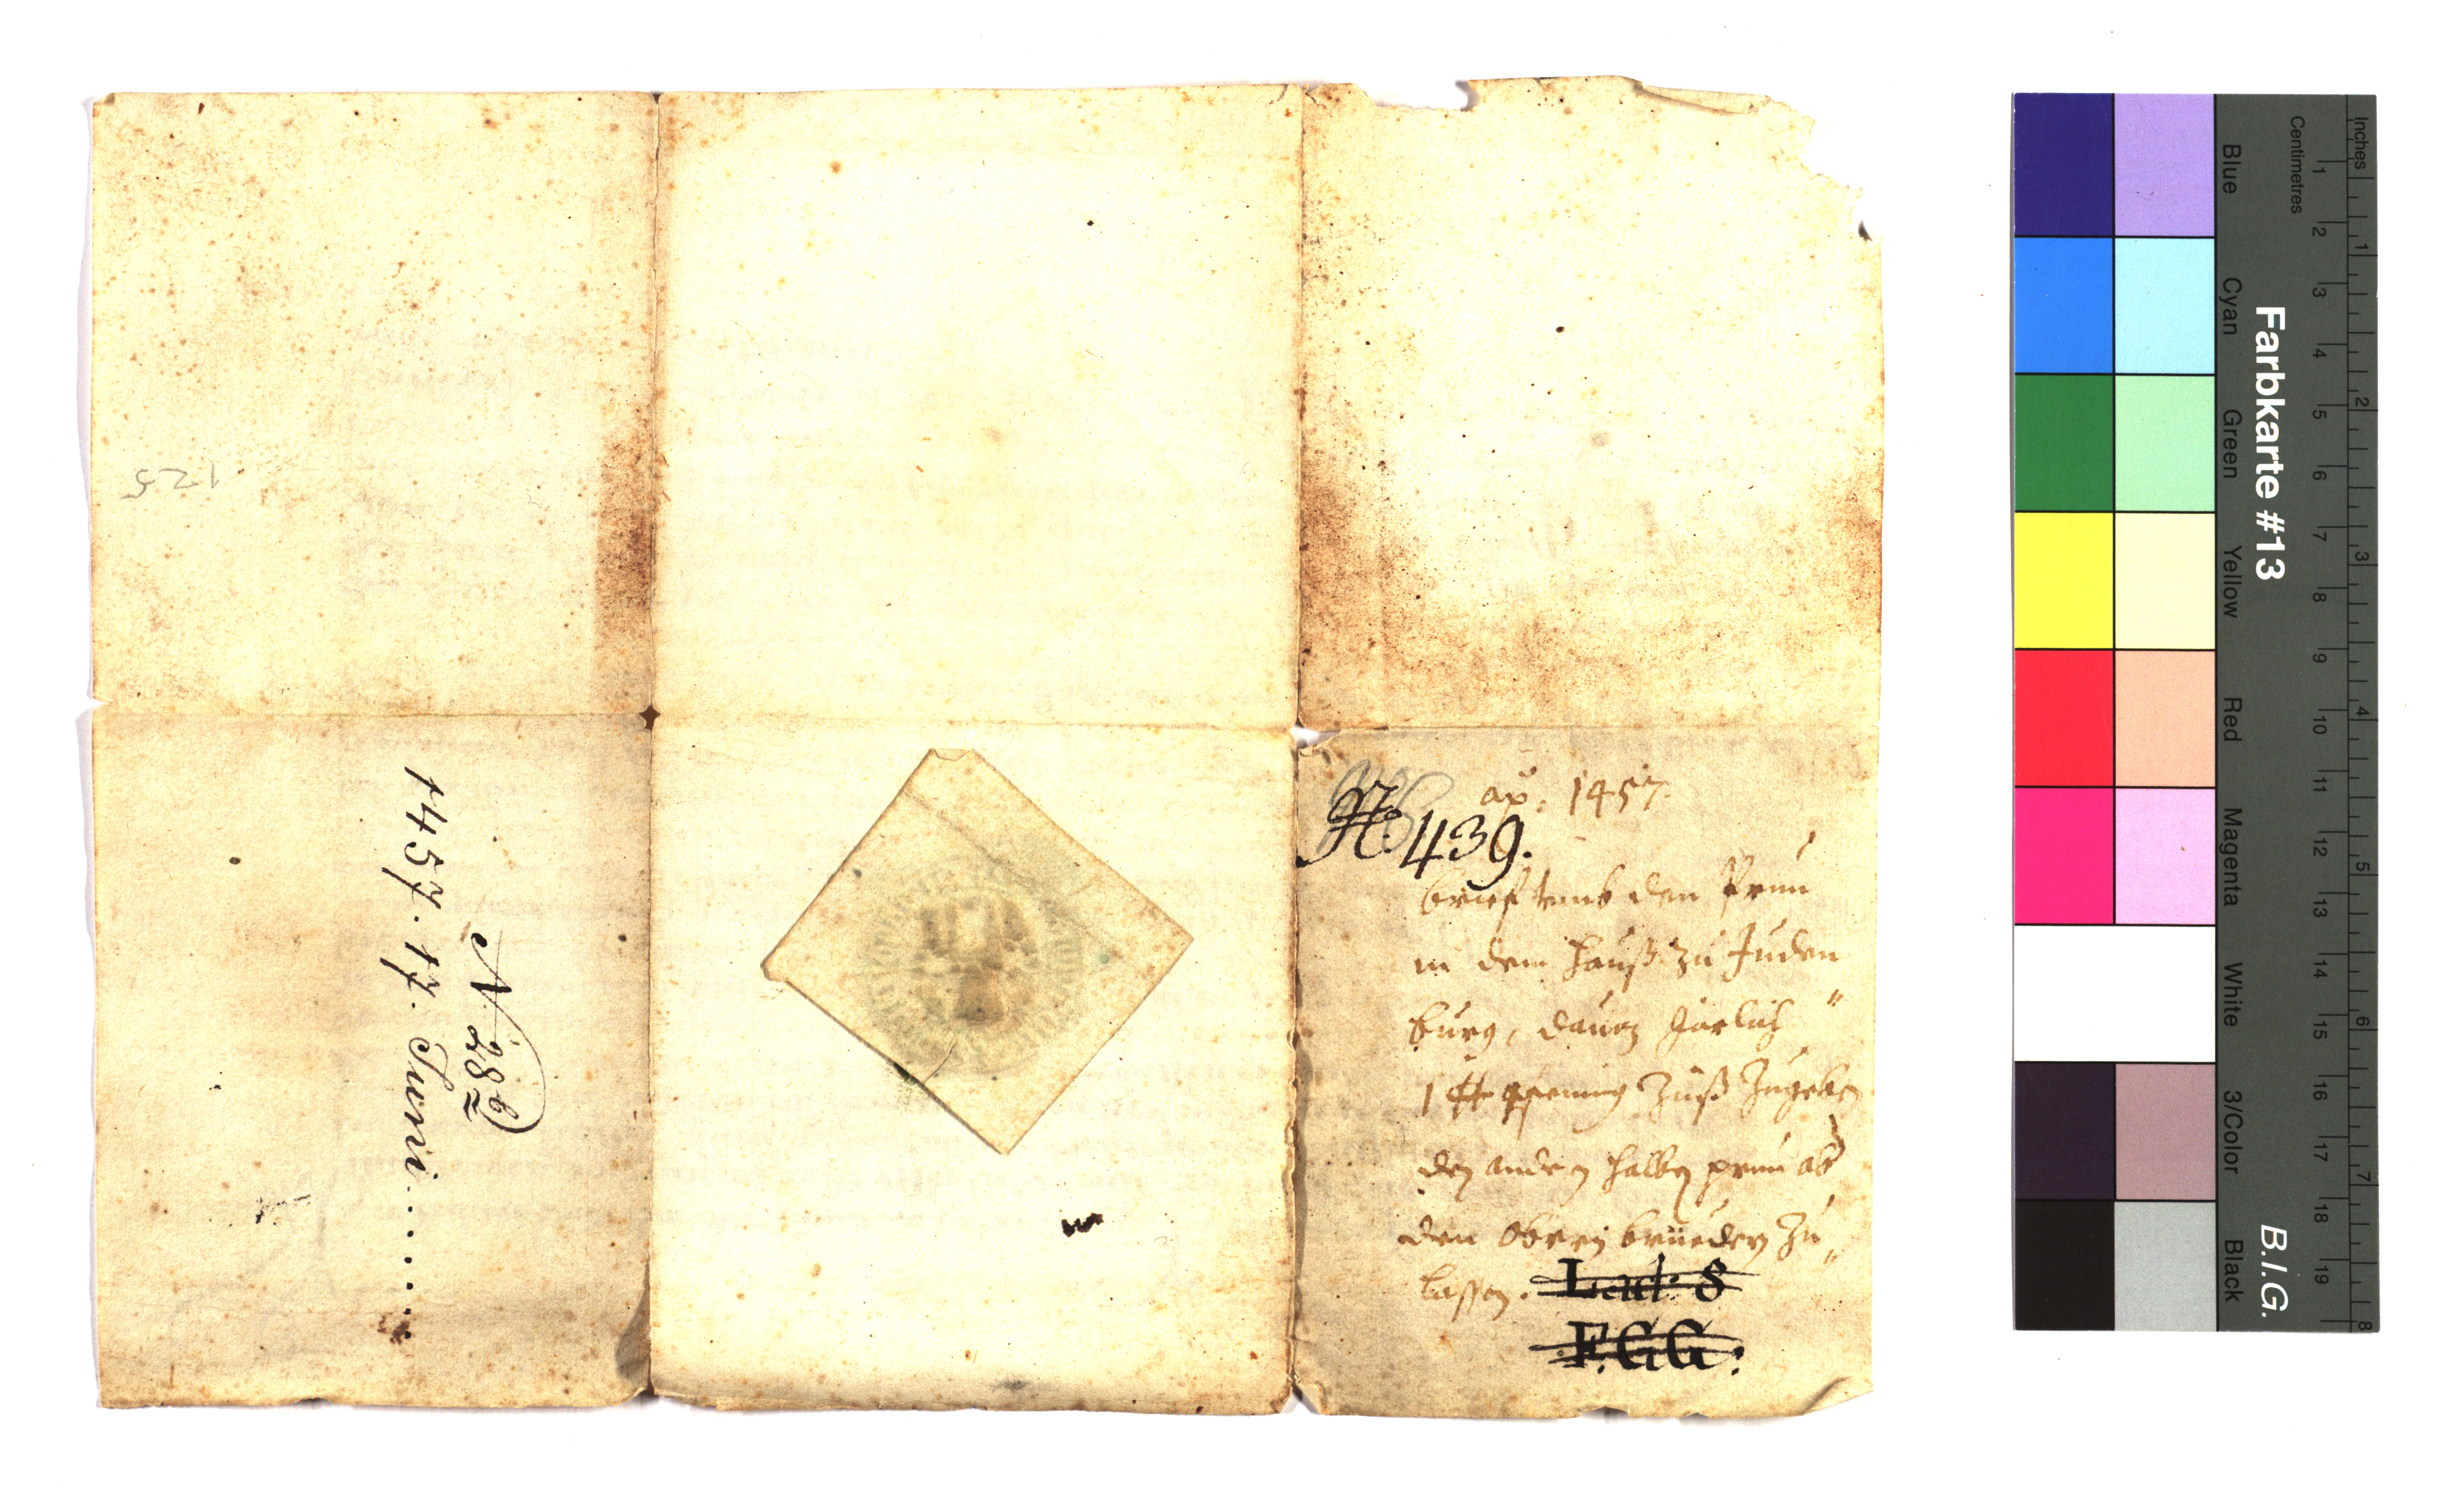 125
N 286)
1457. 17. Juni.......
ao: 1457.
N. 439.
brief umb den Prun
in dem hauß zu Juden
burg, dauon Järlich
1 ℔ pfening Zinß Zugeben
den andern halben prun ab
den obern brüedern Zu„
lassen. Lad: 8
F.G.G.
Farbkarte #13
B.I.G.
Inches
Centimetres
1 2 3 4 5 6 7 8 9 10 11 12 13 14 15 16 17 18 19
1 2 3 4 5 6 7 8
Blue
Cyan
Green
Yellow
Red
Magenta
White
3/Color
Black